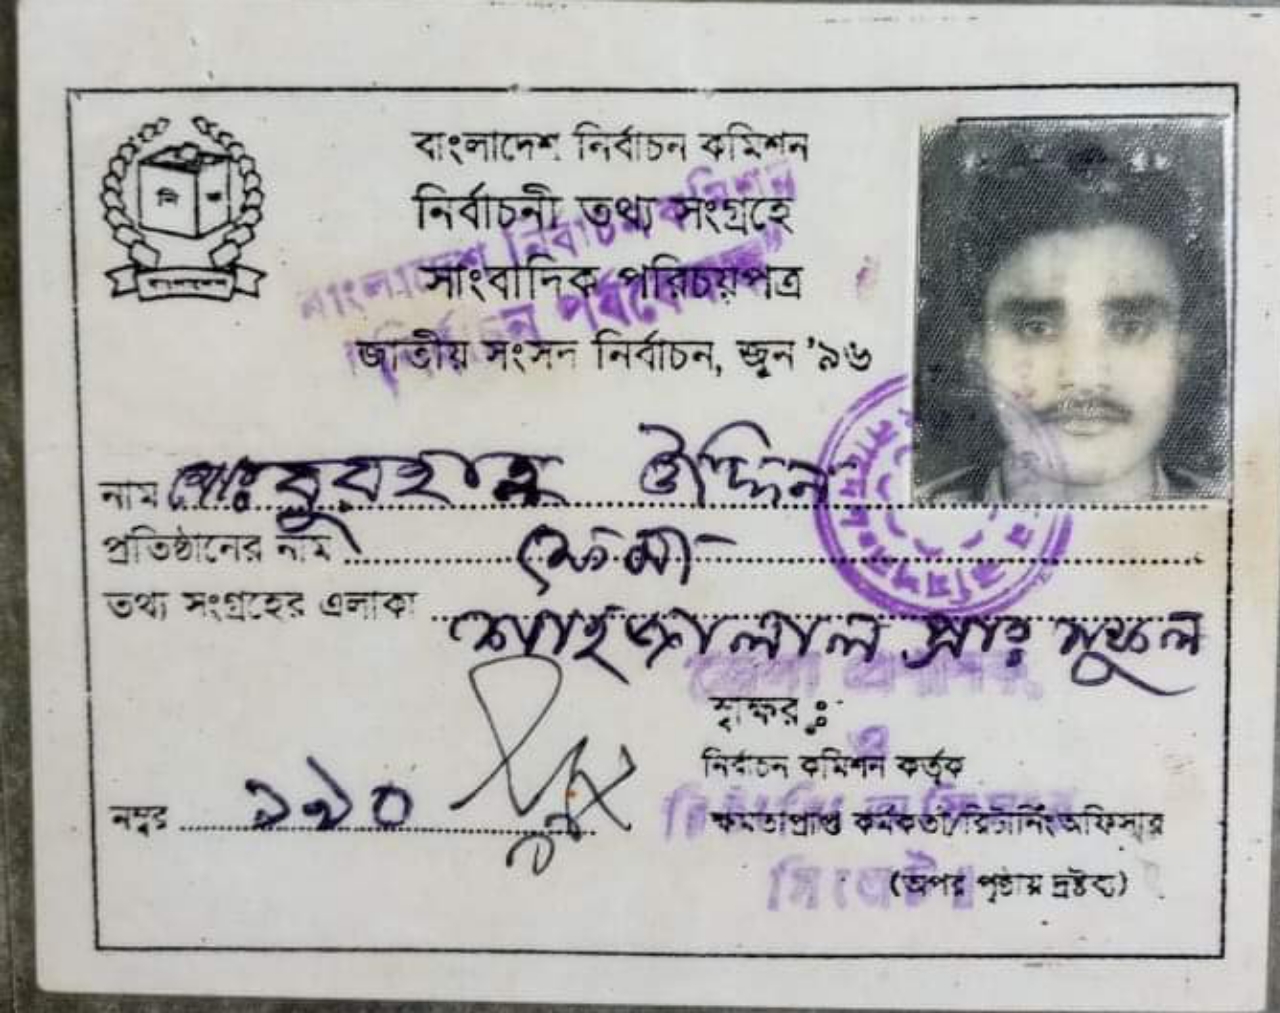 বাংলাদেশ নির্বাচন কমিশন
নির্বাচনী তথ্য সংগ্রহে
সাংবাদিক পরিচয়পত্র
জাতীয় সংসদ নির্বাচন, জুন '৯৬
বাংলাদেশ নির্বাচন কমিশন
নির্বাচন পর্যবেক্ষক"
নাম মোঃ বুরহান উদ্দিন
প্রতিষ্ঠানের নাম ফেমা
তথ্য সংগ্রহের এলাকা শাহজালাল
স্বাক্ষর ঃ
নির্বাচন কমিশন কর্তৃক
নম্বর ১৯০
ক্ষমতাপ্রাপ্ত কর্মকর্তা/রিটার্নিং অফিসার
(অপর পৃষ্ঠায় দ্রষ্টব্য)